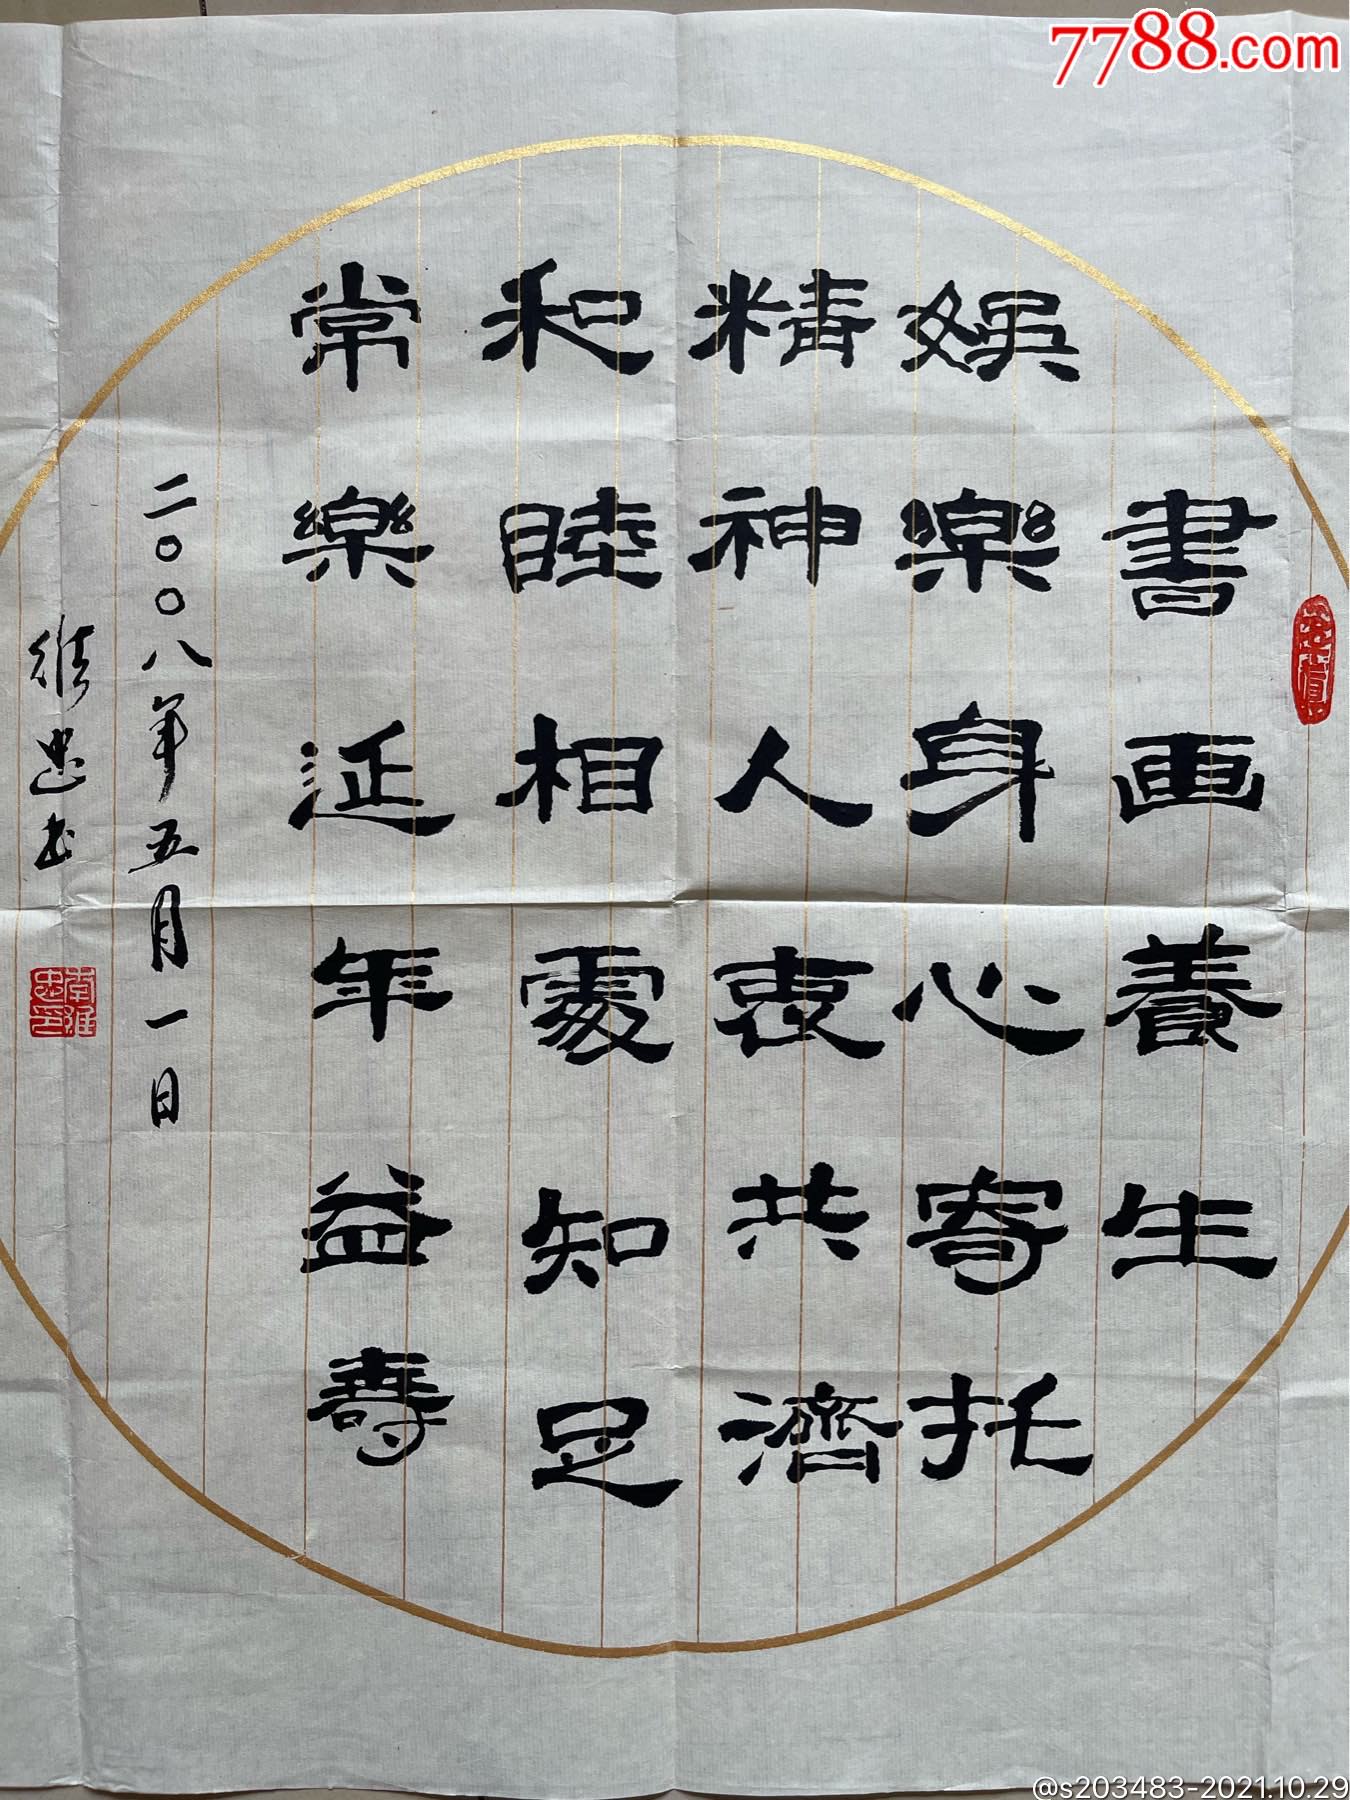 7788.com
書画養生
娛樂身心寄托
精神人衷共濟
和睦相處知足
常樂延年益壽
二〇〇八年五月一日
維忠书
維忠印
@s203483-2021.10.29